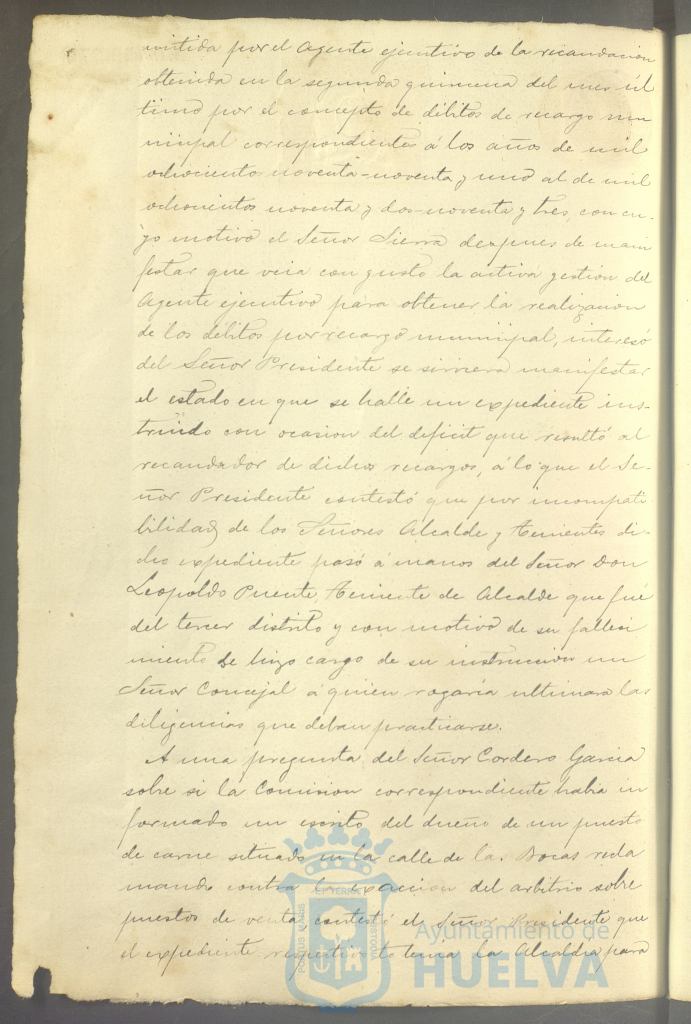 mitida por el Agente ejecutivo de la recaudacion
obtenida en la segunda quincena del mes úl
timo por el concepto de débitos de recargo mu
nicipal correspondientes á los años de mil
ochocientos noventa-noventa y uno al de mil
ochocientos noventa y dos-noventa y tres, con cu-
yo motivo el Señor Sierra despues de mani
festar que veia con gusto la activa gestion del
Agente ejecutivo para obtener la realizacion
de los débitos por recargo municipal, interesó
del Señor Presidente se sirviera manifestar
el estado en que se halle un expediente ins-
truido con ocasion del deficit que resultó al
recaudador de dichos recargos, á lo que el Se-
ñor Presidente contestó que por incompati
bilidad de los Señores Alcalde y Tenientes di-
cho expediente pasó á manos del Señor Don
Leopoldo Puente, Teniente de Alcalde que fué
del tercer distrito y con motivo de su falleci
miento se hizo cargo de su instruccion un
Señor Concejal á quien rogaria ultimara las
diligencias que deban practicarse.
A una pregunta del Señor Cordero Garcia
sobre si la Comision correspondiente habia in
formado un escrito del dueño de un puesto
de carne situado en la calle de la. Bocas recla
mando contra la exaccion del arbitrio sobre
puestos de venta contestó el Señor Presidente que
el expediente respectivo lo tenia la Alcaldia para
PORTUS MARIS
ET TERRÆ
CUSTODIA
Ayuntamiento de
HUELVA